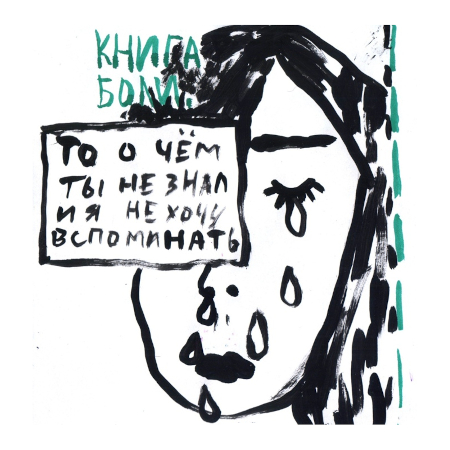 КНИГА
БОЛИ.
ТО О ЧЁМ
ТЫ НЕ ЗНАЛ
И Я НЕ ХОЧУ
ВСПОМИНАТЬ